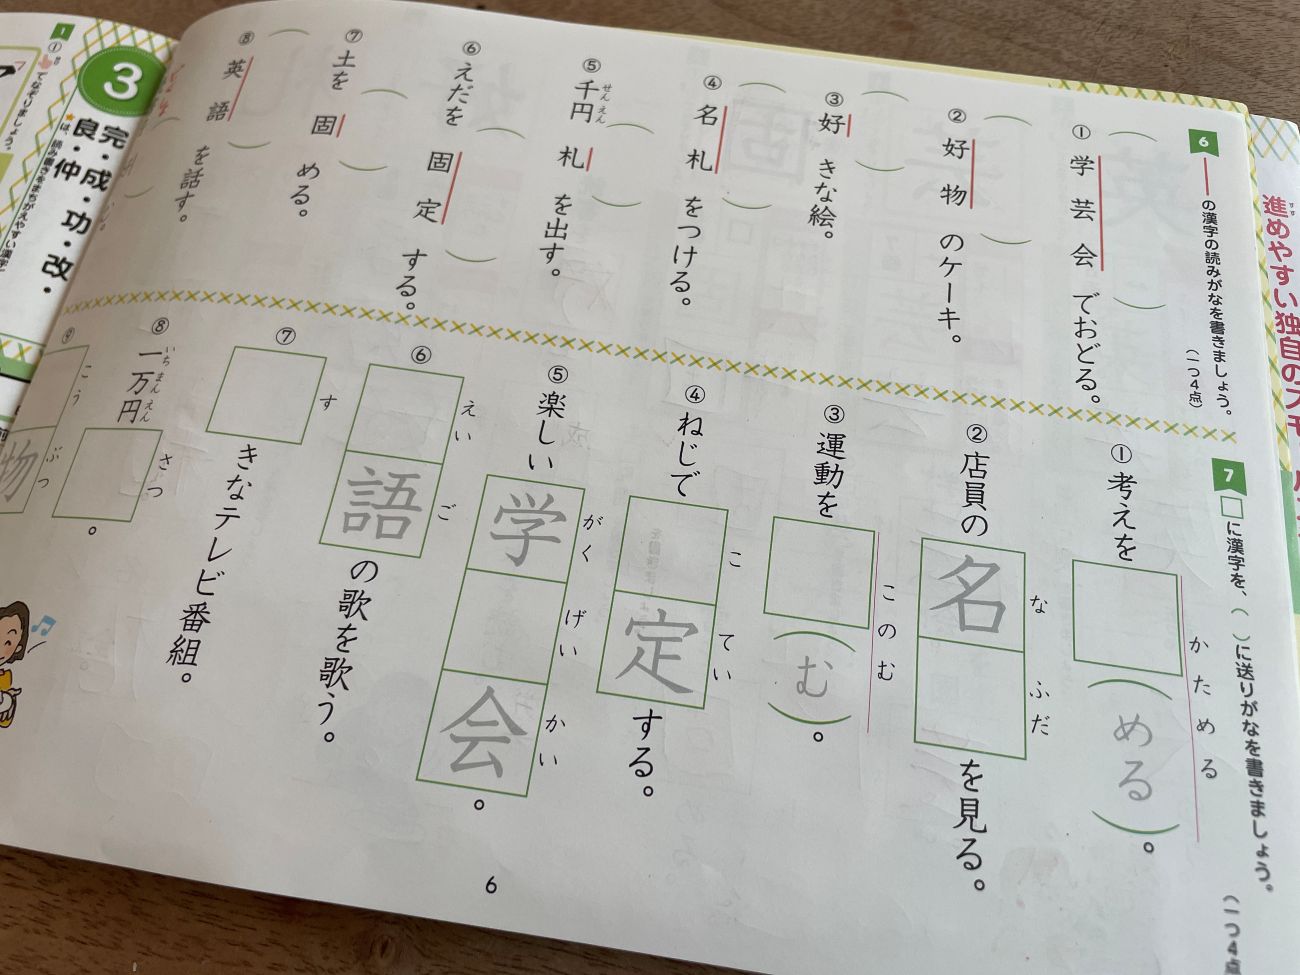 進めやすい独自のステ
6 ―の漢字の読みがなを書きましょう。
(一つ4点)
① 学芸会でおどる。
② 好物のケーキ。
③ 好きな絵。
④ 名札をつける。
⑤ 千円札を出す。
せんえん
⑥ えだを固定する。
⑦ 土を固める。
⑧ 英語を話す。
7 □に漢字を、( )に送りがなを書きましょう。
(一つ4点)
① 考えを□(める)。
かためる
② 店員の名□を見る。
なふだ
③ 運動を□(む)。
このむ
④ ねじで□定する。
こてい
⑤ 楽しい学□会。
がくげいかい
⑥ □語の歌を歌う。
えいご
⑦ □きなテレビ番組。
す
⑧ 一万円□。
いちまんえんさつ
⑨ □物
こうぶつ
6
3
完・成・功・改・
良・仲
★は、読み書きをまちがえやすい漢字
1
① てなぞりましょう。